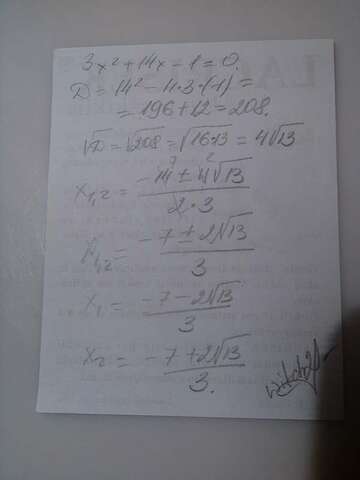 3x² + 14x - 1 = 0.
D = 14² - 4·3·(-1) =
= 196 + 12 = 208.
√D = √208 = √16·13 = 4√13
x₁,₂ = -14 ± 4√13 / 2·3
7 2
x₁,₂ = -7 ± 2√13 / 3
x₁ = -7 - 2√13 / 3
x₂ = -7 + 2√13 / 3.